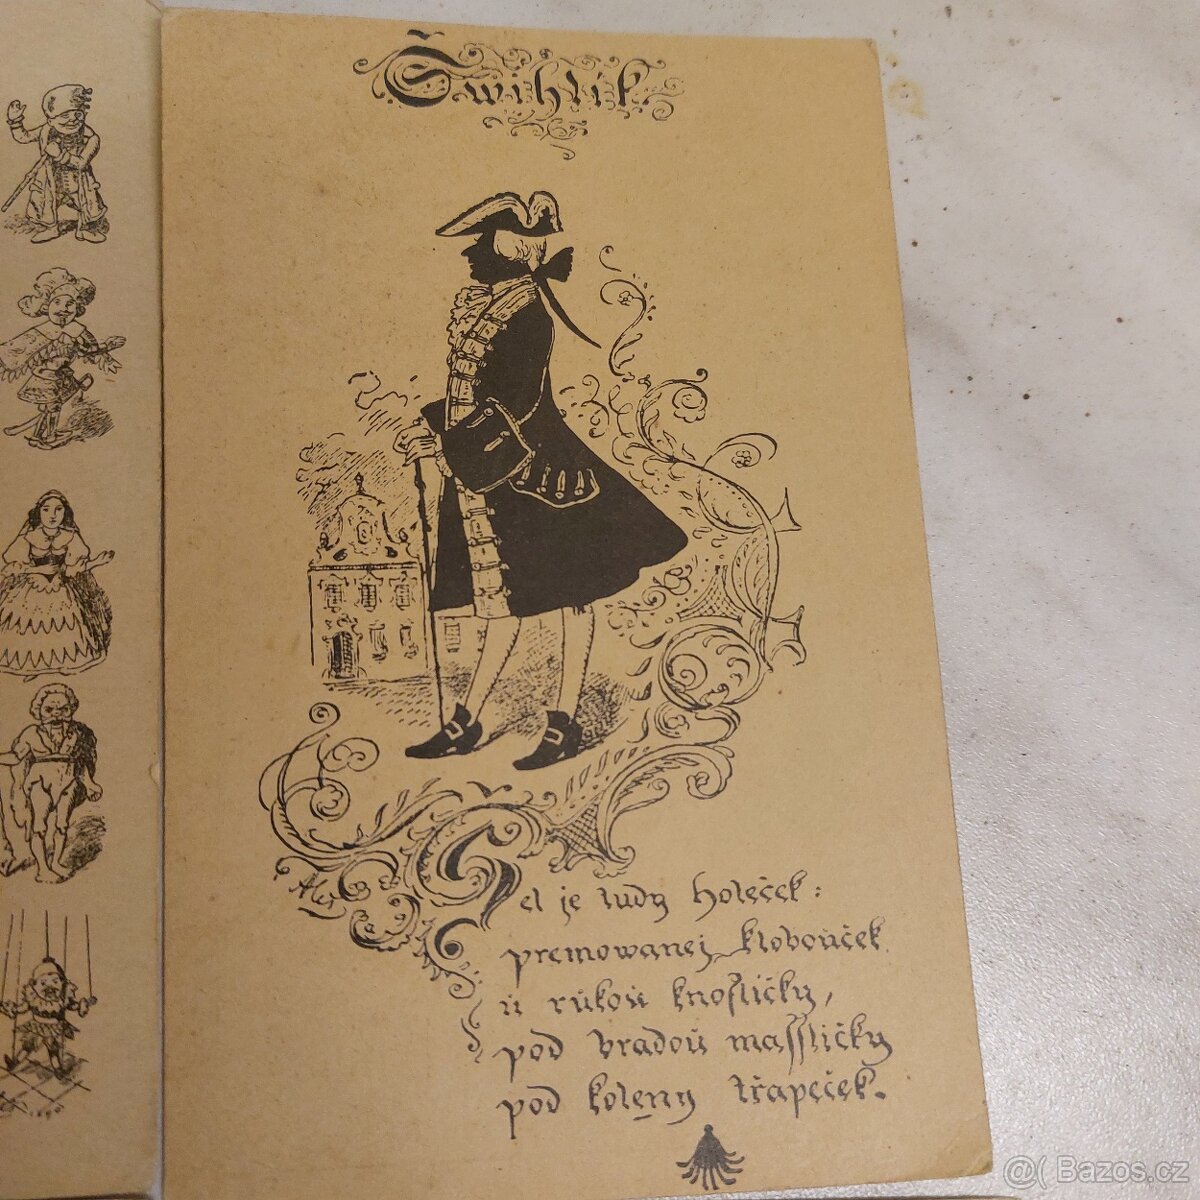 Šwihlík.
Šel je tudy Holeček:
premowanej klobouček
u růkou knoflíčky,
pod bradou maſſličky
pod koleny třapeček.
Aleš
@( Bazos.cz